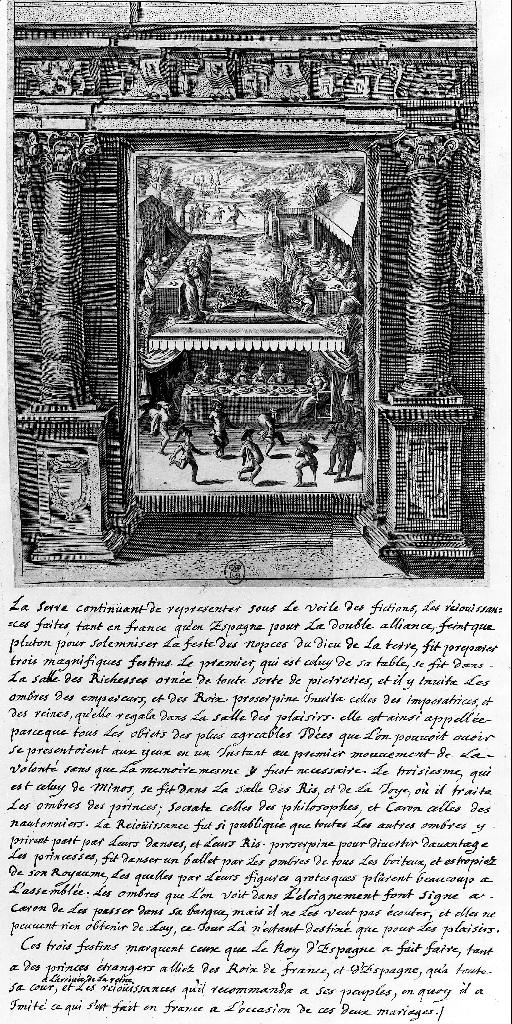 La Serre continüant de representer sous Le voile des fictions, Les réioüissan=
=ces faites tant en france qu'en Espagne pour La double alliance, feint que
pluton pour solemniser La feste des nopces du dieu de La terre, fit preparer
trois magnifiques festins. Le premier, qui est celuy de sa table, se fit dans
La salle des Richesses ornée de toute sorte de pierreries, et il y Inuita Les
ombres des empereurs, et des Roix. proserpine Inuita celles des Imperatrices, et
des reines, qu'elle regala dans La salle des plaisirs. elle est ainsi appellée
parceque tous Les objets des plus agreables Idées que L'on pouuoit auoir
se presentoient aux yeux en un Instant au premier mouuement de La
volonté sans que La memoire mesme y fust necessaire. Le troisiesme, qui
est celuy de Minos, se fit dans La salle des Ris, et de La Joye, où il traita
Les ombres des princes; Socrate celles des philosophes, et Caron celles des
nautonniers. La Reioüissance fut si publique que toutes Les autres ombres y
prirent part par Leurs danses, et Leurs Ris. proserpine pour diuertir dauantage
Les princesses, fit danser un ballet par Les ombres de tous Les boiteux, et estropiez
de son Royaume, Les quelles par Leurs figures grotesques plûrent beaucoup a
L'assemblée. Les ombres que L'on voit dans L'éloignement font signe a
Caron de Les passer dans sa barque, mais il ne Les veut pas écouter, et elles ne
peuuent rien obtenir de Luy, ce Jour La n'estant destiné que pour Les plaisirs.
Ces trois festins marquent ceux que Le Roy d'Espagne a fait faire, tant
a des princes étrangers alliez des Roix de france, et d'Espagne, qu'a toute
sa cour, et Les reioüissances qu'il recommanda a ses peuples, en quoy il a
Imité ce qui s'est fait en france a L'occasion de ces deux mariages.